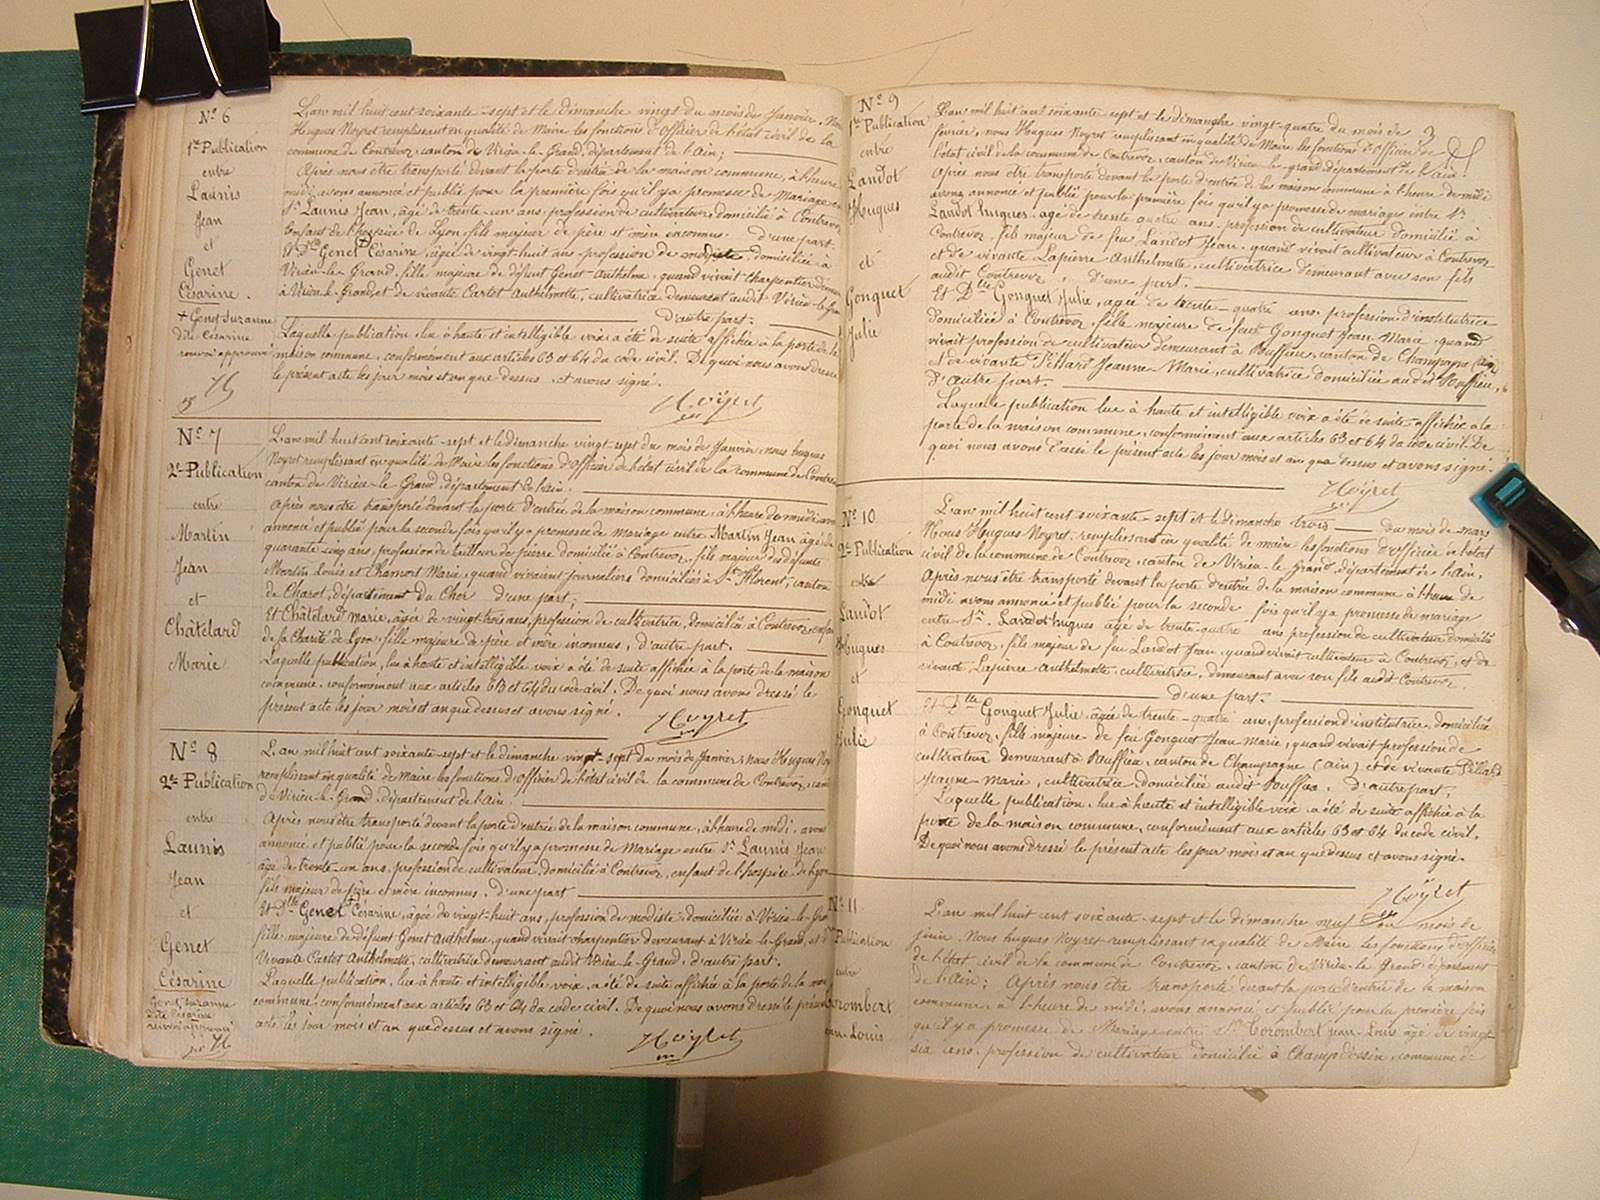 Nº 6
1re Publication
entre
Launis
Jean
et
Genet
Césarine.
+ Genet Suzanne
dite Césarine
renvoi approuvé
L'an mil huit cent soixante-sept et le dimanche vingt du mois de Janvier, Nous
Hugues Noyret remplissant en qualité de Maire les fonctions d'officier de l'état-civil de la
commune de Contrevoz, canton de Virieu-le-Grand, département de l'Ain;
Après nous être transporté devant la porte d'entrée de la maison commune, à l'heure de
midi, avons annoncé et publié pour la première fois qu'il y a promesse de Mariage entre
Sr. Launis Jean, âgé de trente-un ans, profession de cultivateur, domicilié à Contrevoz
enfant de l'hospice de Lyon, fils majeur de père et mère inconnus. d'une part.
Et Dlle Genet + Césarine, âgée de vingt-huit ans, profession de modiste, domiciliée à
Virieu-le-Grand, fille majeure de défunt Genet Anthelme, quand vivait charpentier demeurant
à Virieu-le-Grand, et de vivante Cartet Anthelmette, cultivatrice demeurant audit Virieu-le-Grand
D'autre part.
Laquelle publication, lue à haute et intelligible voix a été de suite affichée à la porte de la
maison commune, conformément aux articles 63 et 64 du code civil. De quoi nous avons dressé
le présent acte les jour mois et an que dessus et avons signé.
Noyret
Nº 7
2e Publication
entre
Martin
Jean
et
Châtelard
Marie
L'an mil huit cent soixante-sept et le dimanche vingt-sept du mois de Janvier, nous hugues
Noyret remplissant en qualité de Maire les fonctions d'officier de l'état civil de la commune de Contrevoz
canton de Virieu-le Grand, département de l'ain.
Après nous être transporté devant la porte d'entrée de la maison commune, à l'heure de midi avons
annoncé et publié pour la seconde fois qu'il y a promesse de mariage entre Martin Jean âgé de
quarante cinq ans, profession de tailleur de pierre domicilié à Contrevoz, fils majeur de défunts
Martin Louis et Chamort Marie, quand vivaient journaliers domiciliés à St. Florent, canton
de Charot, département du Cher d'une part;
Et Châtelard Marie, âgée de vingt-trois ans, profession de cultivatrice, domiciliée à Contrevoz, enfant
de la Charité de Lyon, fille majeure de père et mère inconnus, d'autre part.
Laquelle publication, lue à haute et intelligible voix a été de suite affichée à la porte de la maison
commune, conformément aux articles 63 et 64 du code civil. De quoi nous avons dressé le
présent acte les jour mois et an que dessus et avons signé.
Noyret
Nº 8
2e Publication
entre
Launis
Jean
et
Genet
Césarine
Genet Suzanne
dite Césarine
renvoi approuvé
L'an mil huit cent soixante-sept et le dimanche vingt-sept du mois de Janvier, nous Hugues Noyret
remplissant en qualité de Maire les fonctions d'officier de l'état civil de la commune de Contrevoz, canton
de Virieu-le-Grand, département de l'Ain.
Après nous être transporté devant la porte d'entrée de la maison commune, à l'heure de midi, avons
annoncé et publié pour la seconde fois qu'il y a promesse de Mariage entre Sr. Launis Jean
âgé de trente-un ans, profession de cultivateur, domicilié à Contrevoz, enfant de l'hospice de Lyon
fils majeur de père et mère inconnus. d'une part
Et Dlle Genet + Césarine, âgée de vingt-huit ans, profession de modiste, domiciliée à Virieu-le-Grand
fille majeure de défunt Genet Anthelme, quand vivait charpentier demeurant à Virieu-le-Grand, et de
Vivante Cartet Anthelmette, cultivatrice demeurant audit Virieu-le-Grand, d'autre part.
Laquelle publication, lue à haute et intelligible voix, a été de suite affichée à la porte de la maison
commune, conformément aux articles 63 et 64 du code civil. De quoi nous avons dressé le présent
acte les jour mois et an que dessus et avons signé.
Noyret
Nº 9
1re Publication
entre
Landot
Hugues
et
Gonguet
Julie
L'an mil huit cent soixante-sept et le dimanche vingt-quatre du mois de
février, nous Hugues Noyret remplissant en qualité de Maire les fonctions d'officier de
l'état civil de la commune de Contrevoz, canton de Virieu-le-grand, département de l'ain.
Après nous être transporté devant la porte d'entrée de la maison commune à l'heure de midi
avons annoncé et publié pour la première fois qu'il y a promesse de mariage entre Sr.
Landot hugues, âgé de trente quatre ans, profession de cultivateur domicilié à
Contrevoz, fils majeur de feu Landot Jean, quand vivait cultivateur à Contrevoz
et de vivante Lapierre Anthelmette, cultivatrice demeurant avec son fils
audit Contrevoz, d'une part.
Et Dlle Gonguet Julie, âgée de trente-quatre ans, profession d'institutrice
domiciliée à Contrevoz, fille majeure de feu Gonguet Jean Marie, quand
vivait profession de cultivateur demeurant à Ruffieu, canton de Champagne (Ain)
et de vivante Pillard Jeanne-Marie, cultivatrice domiciliée audit Ruffieu,
d'autre part.
Laquelle publication lue à haute et intelligible voix a été de suite affichée à la
porte de la maison commune, conformément aux articles 63 et 64 du code civil. De
quoi nous avons dressé le présent acte les jour mois et an que dessus et avons signé.
Noyret
Nº 10
2e Publication
entre
Landot
Hugues
et
Gonguet
Julie
L'an mil huit cent soixante-sept et le dimanche trois du mois de mars
Nous Hugues Noyret, remplissant en qualité de maire les fonctions d'officier de l'état
civil de la commune de Contrevoz, canton de Virieu-le Grand, département de l'ain,
Après nous être transporté devant la porte d'entrée de la maison commune à l'heure de
midi avons annoncé et publié pour la seconde fois qu'il y a promesse de mariage
entre Sr. Landot hugues âgé de trente-quatre ans, profession de cultivateur domicilié
à Contrevoz, fils majeur de feu Landot Jean, quand vivait cultivateur à Contrevoz, et de
vivante Lapierre Anthelmette, cultivatrice, demeurant avec son fils audit Contrevoz.
d'une part.
Et Dlle Gonguet Julie, âgée de trente-quatre ans, profession d'institutrice, domiciliée
à Contrevoz, fille majeure de feu Gonguet Jean-Marie, quand vivait profession de
cultivateur demeurant à Ruffieu, canton de Champagne (ain) et de vivante Pillard
Jeanne-Marie, cultivatrice, domiciliée audit Ruffieu. D'autre part.
Laquelle publication, lue à haute et intelligible voix, a été de suite affichée à la
porte de la maison commune, conformément aux articles 63 et 64 du code civil.
De quoi nous avons dressé le présent acte les jour mois et an que dessus et avons signé.
Noyret
Nº 11.
Publication
entre
Corombert
Jean-Louis
L'an mil huit cent soixante-sept et le dimanche neuf du mois de
juin. Nous hugues Noyret remplissant en qualité de Maire les fonctions d'officier
de l'état civil de la commune de Contrevoz, canton de Virieu-le-Grand, département
de l'Ain; Après nous être transporté devant la porte d'entrée de la maison
commune, à l'heure de midi, avons annoncé et publié pour la première fois
qu'il y a promesse de Mariage entre Sr. Corombert Jean-Louis âgé de vingt-
six ans, profession de cultivateur domicilié à Champdossin, commune de